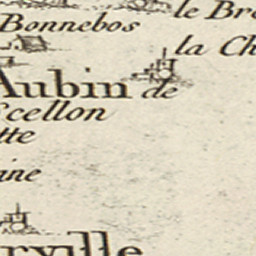 Bonnebos
le Bre
la Ch
Aubin de
Scellon
tte
ine
rville